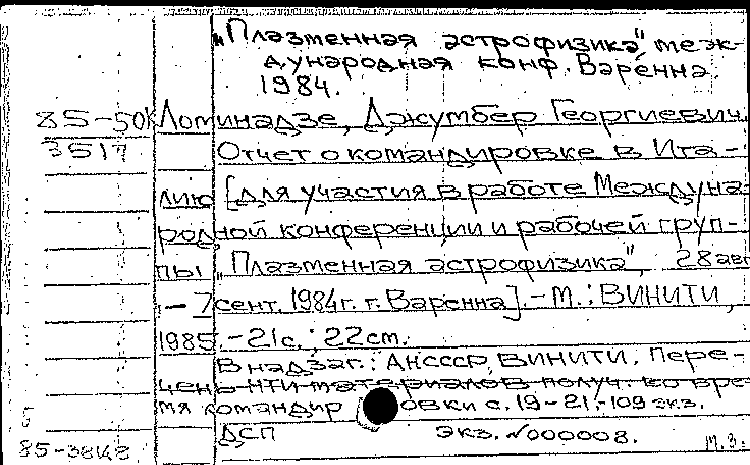 „Плазменная астрофизика" меж-
дународная конф. Варенна.
1984.
85-50К Ломинадзе, Джумбер Георгиевич.
3517 Отчет о командировке в Ита-
лию [для участия в работе Междуна-
родной конференции и рабочей груп-
пы „Плазменная астрофизика", 28 авг
- 7 сент. 1984г. г. Варенна]. - М.: ВИНИТИ,
1985. - 21с.; 22см.
В надзаг.: АН СССР, ВИНИТИ. Пере-
чень нти материалов получ. во вре-
мя командировки с. 19-21.-109 экз.
ДСП экз. №000008.
85-3848 м.з.